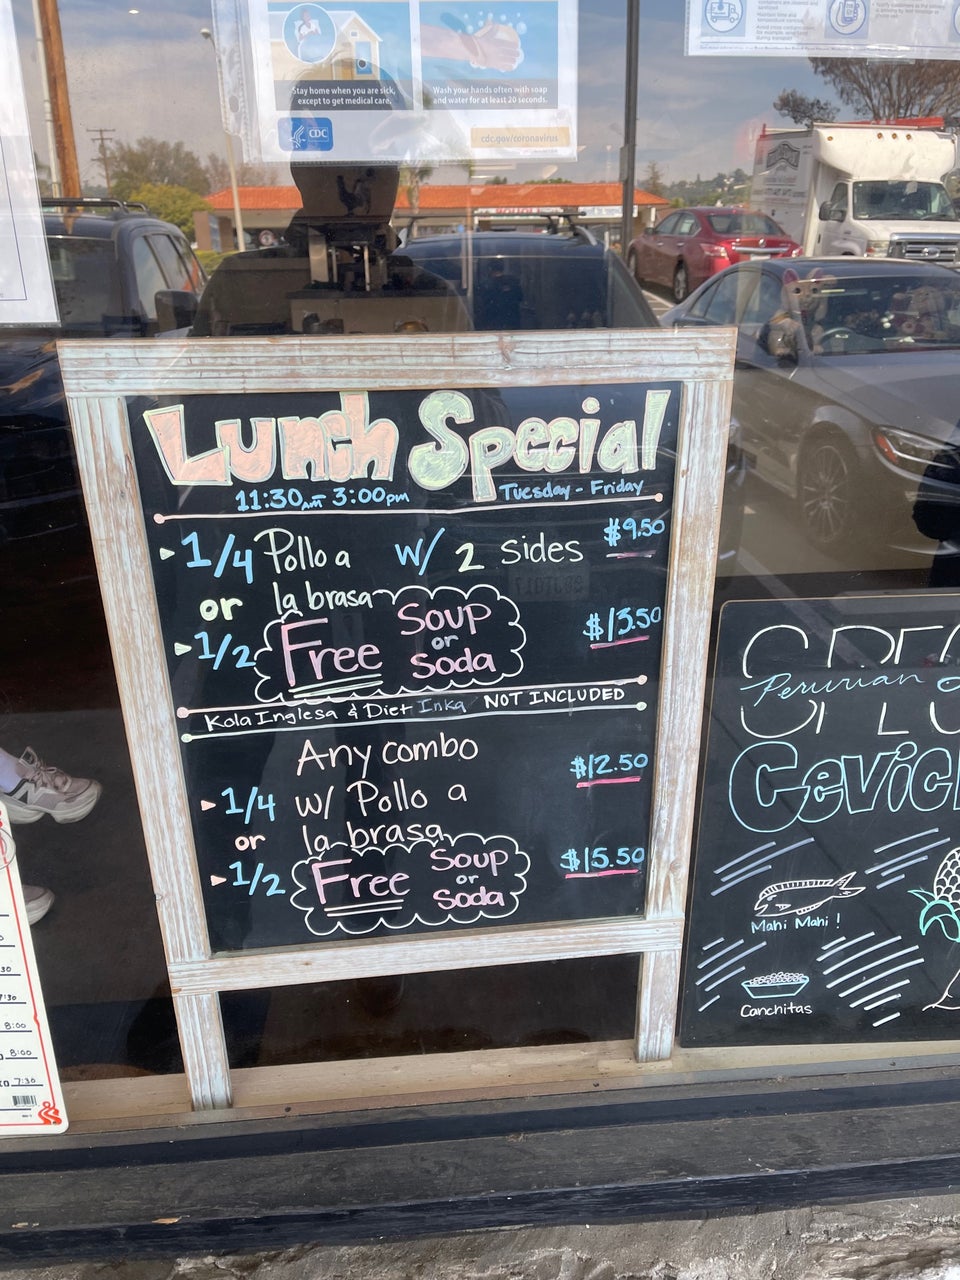 Stay home when you are sick,
except to get medical care.
Wash your hands often with soap
and water for at least 20 seconds.
CDC
cdc.gov/coronavirus
Lunch Special
11:30am - 3:00pm Tuesday - Friday
1/4 Pollo a w/ 2 sides $9.50
or la brasa
1/2 Free Soup or Soda $13.50
Kola Inglesa & Diet Inka NOT INCLUDED
Any combo $12.50
1/4 w/ Pollo a
or la brasa
1/2 Free Soup or Soda $15.50
Peruvian
Cevic
Mahi Mahi!
Canchitas
7:30
8:00
8:00
7:30